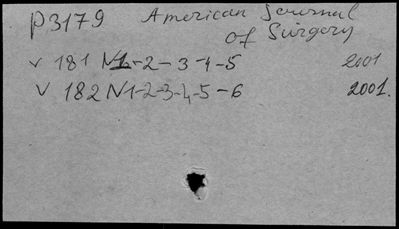 P3179 American Journal
of Surgery
v 181 N1-2-3-4-5 2001
v 182 N1-2-3-4-5-6 2001.